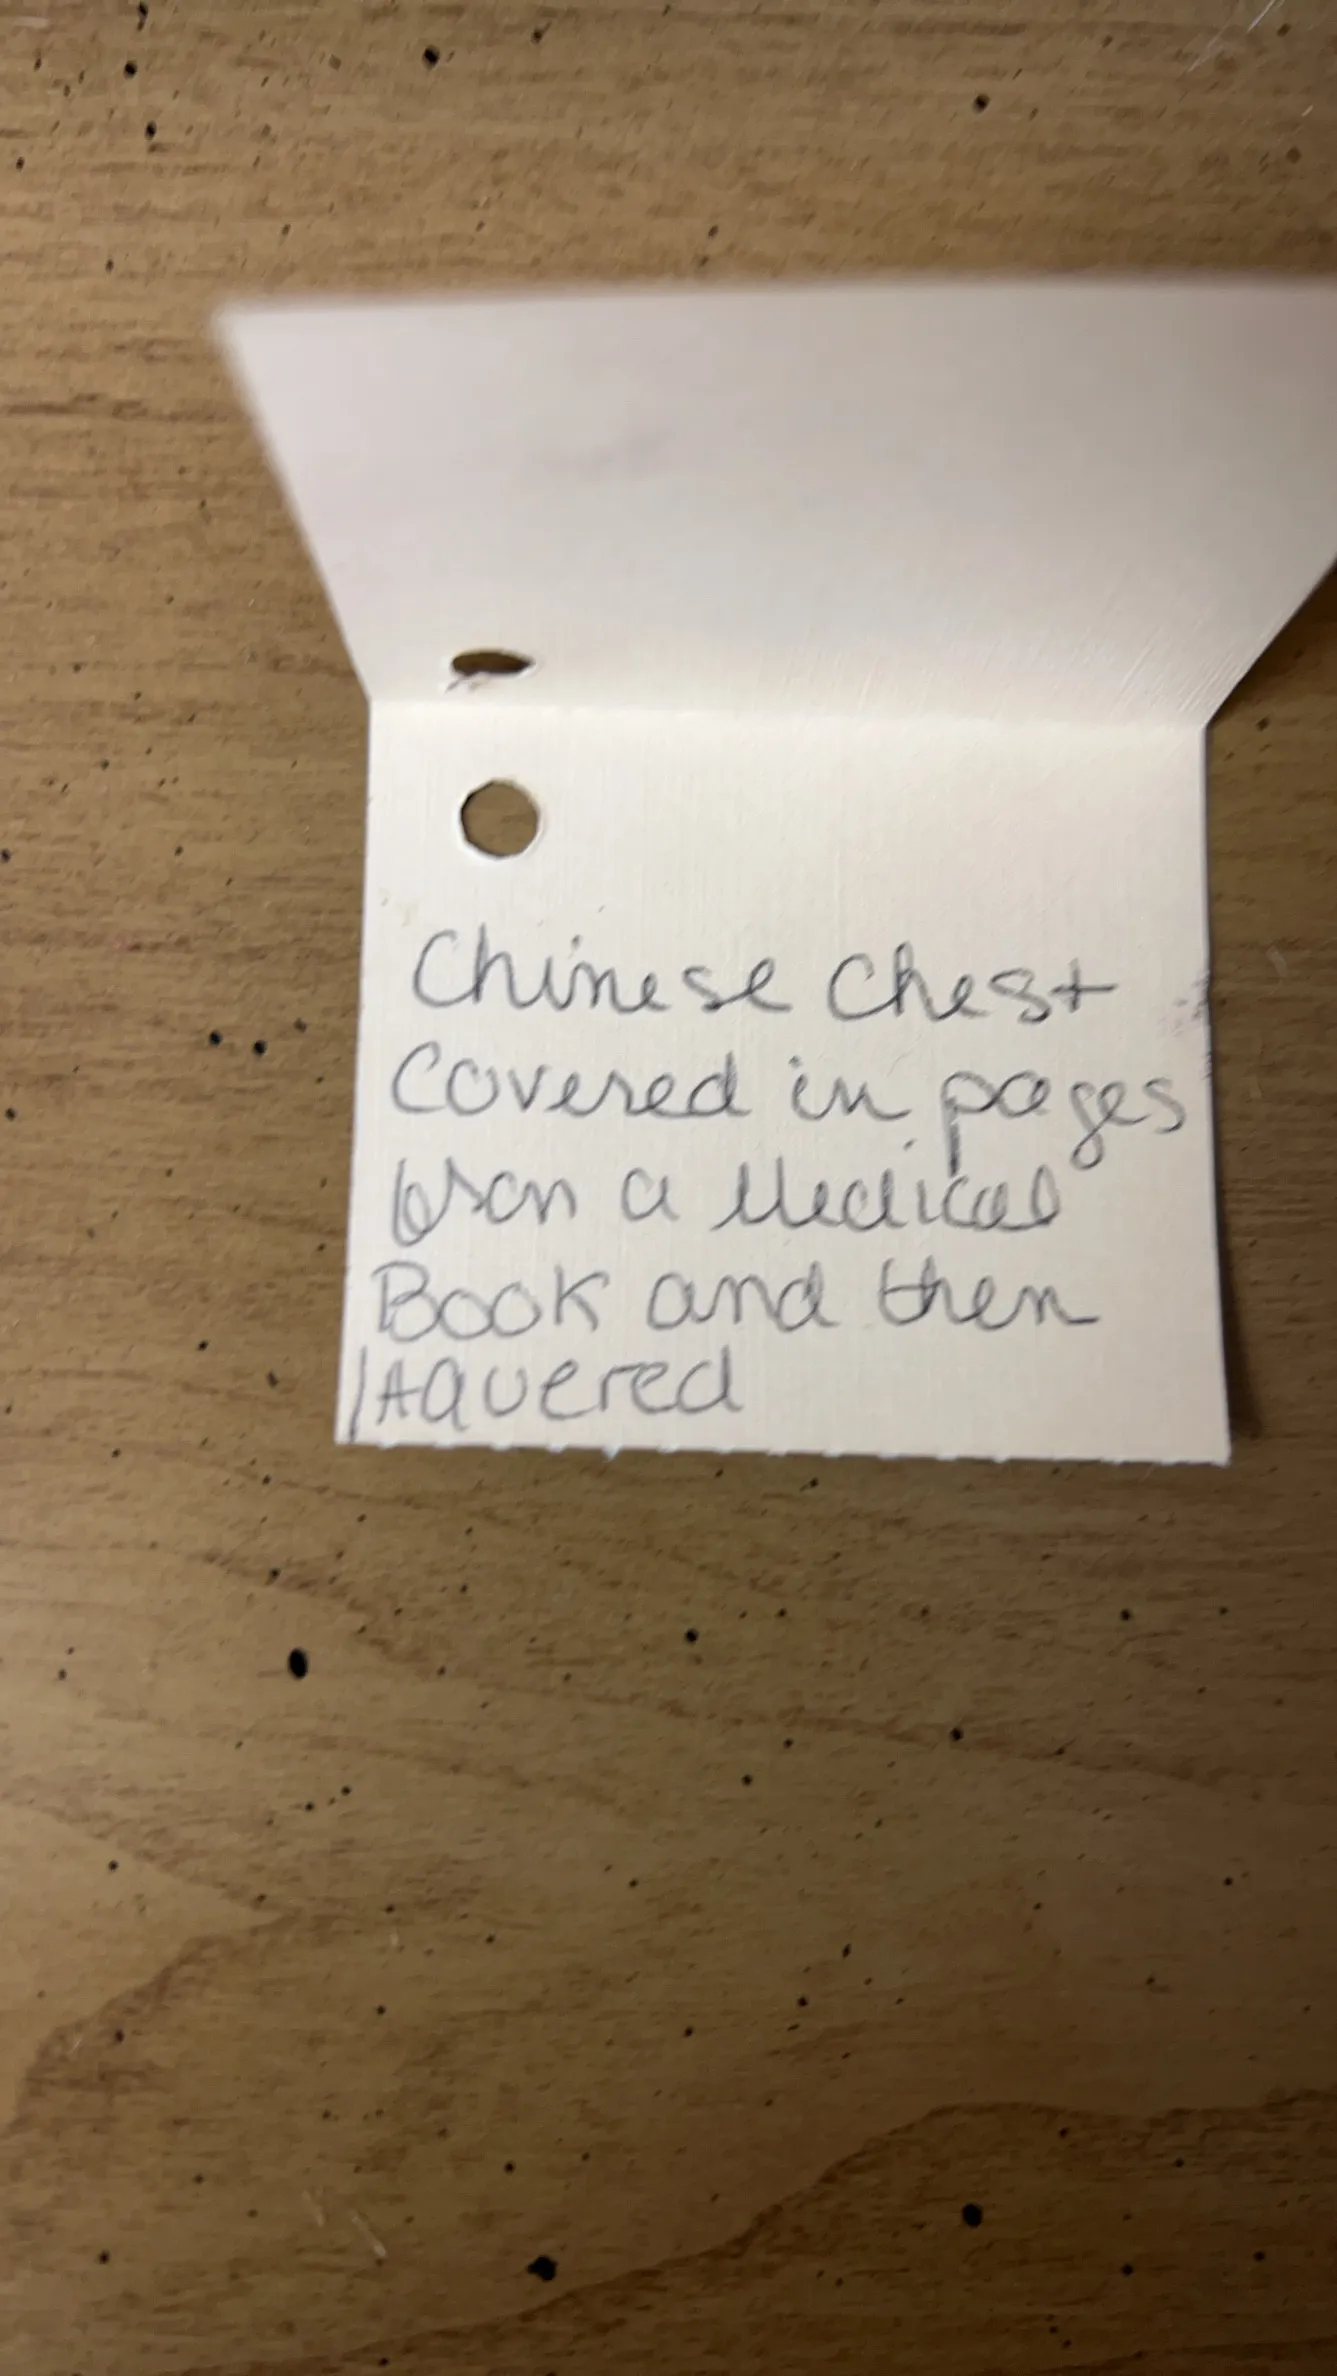 Chinese Chest
Covered in pages
from a Medical
Book and then
lAquered